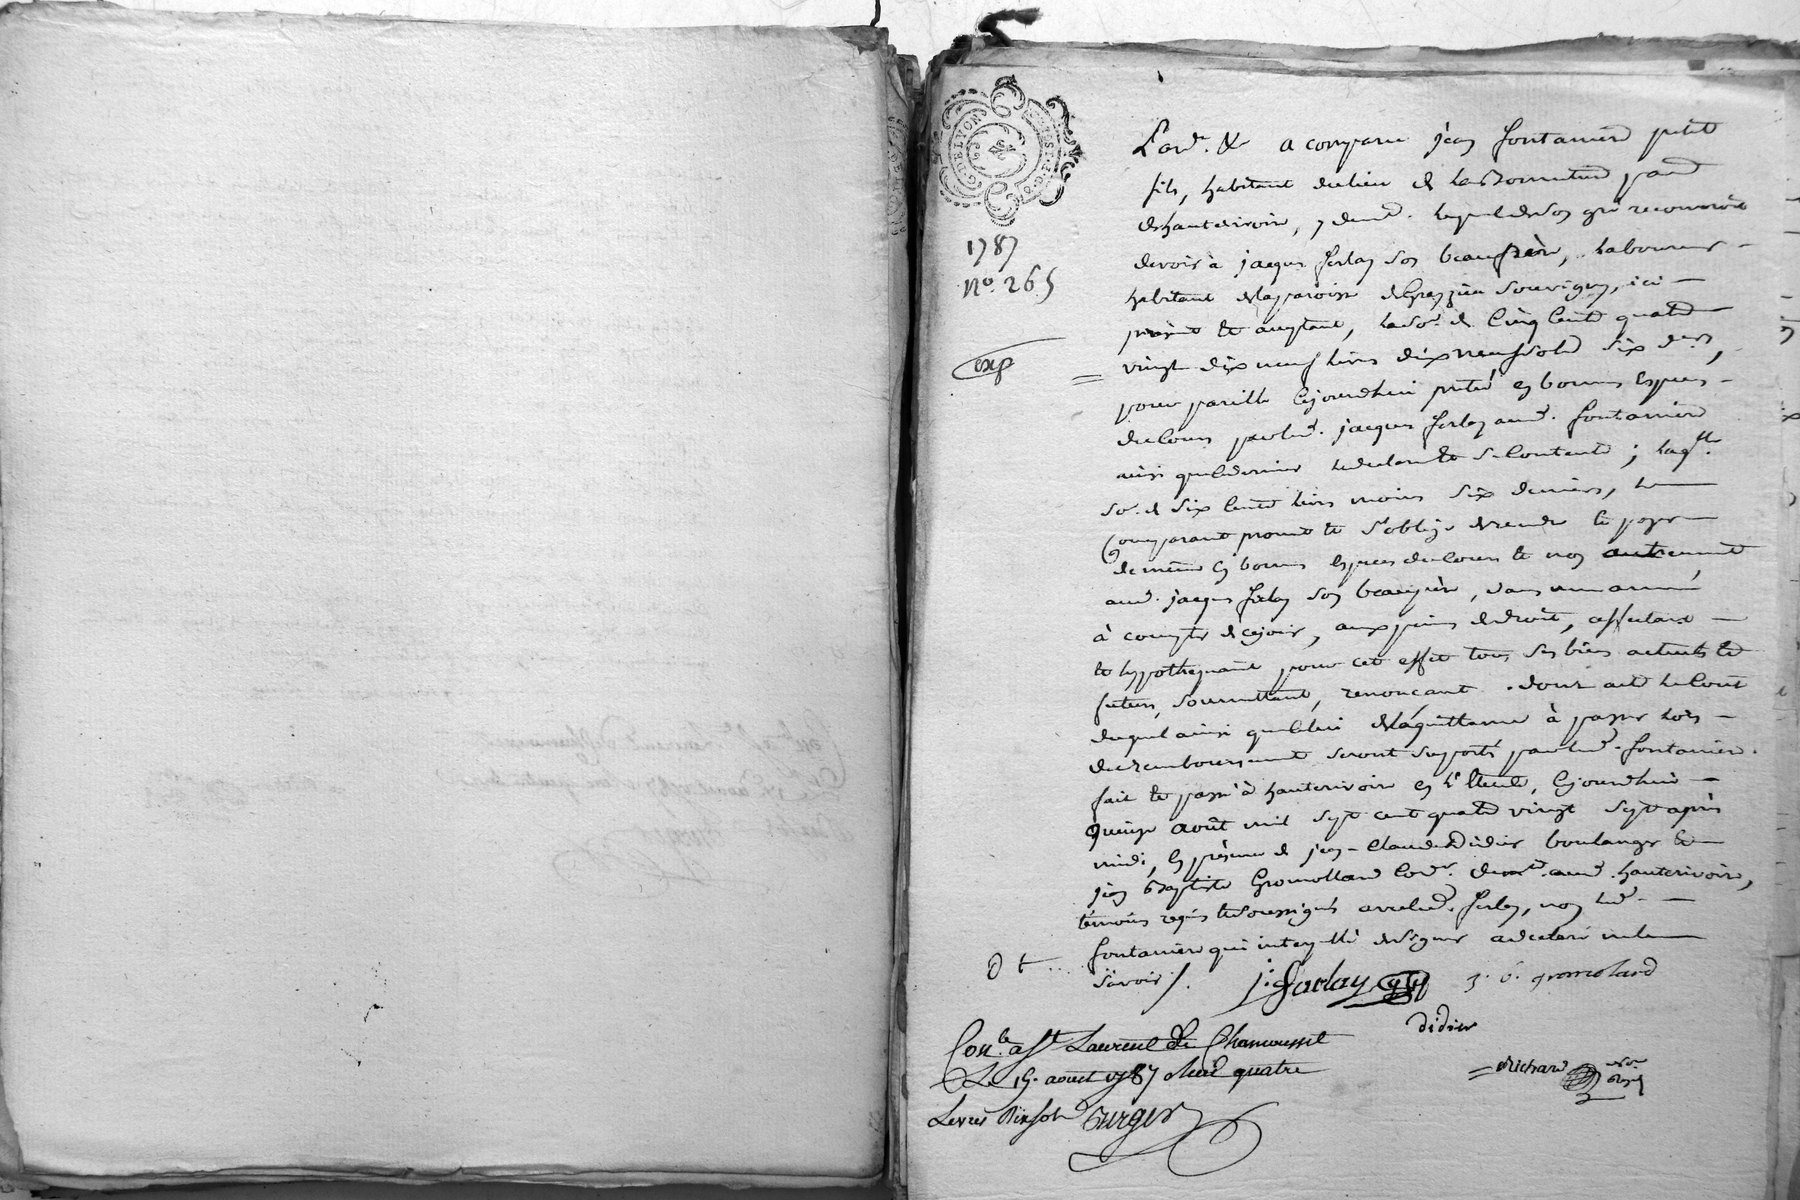 G. DE LYON
1787
No. 265
exp
Pard. &c a comparu jean fontanierd petit
fils, habitant du lieu de parr
d'hauterivoire, y demt. lequel de son gré reconnoit
devoir à jacques ferlay son beaufrère, laboureur
habitant de la paroisse de Grezzieu Souvigny, ici
présent et acceptant, la so. de Cinq Cents quatre
vingt dix neuf livres dix neuf sols six ders,
pour pareille cejourdhui prêté en bonnes Especes
du Cours par led. jacques ferlay aud. fontanierd
ainsi que le dernier le declare et s'en contente ; laqlle.
so. de Six Cents livres moins six deniers, le
Comparant promet et s'oblige de rendre et payer
de même en bonnes especes du Cours et non autrement
aud. jacques ferlay son beaufrère, dans une année
à compter de cejour, aux peines de droit, affectant
et hypothequant pour cet effet tous ses biens actuels et
futurs, soumettant, renonçant. dont acte le Cout
duquel ainsi que celui de la quittance à passer lors
du remboursement seront suportés par led. fontanier.
fait et passé à hauterivoire en l'Etude, Cejourdhui
quinze août mil sept cent quatre vingt sept après
midi, En présence de jean-Claude Didier boulanger et
jean Baptiste Gromollard Cordr. demt. aud. hauterivoire,
témoins requis et soussignés avec led. ferlay, non led.
fontanier qui interpellé de signer a declaré ne le
savoir /.
J. farlay
j. b. gromolard
didier
Richard
Conle. a St Laurent de Chamousset
Le 15. aoust 1787 Recu quatre
Livres dix sols Burger